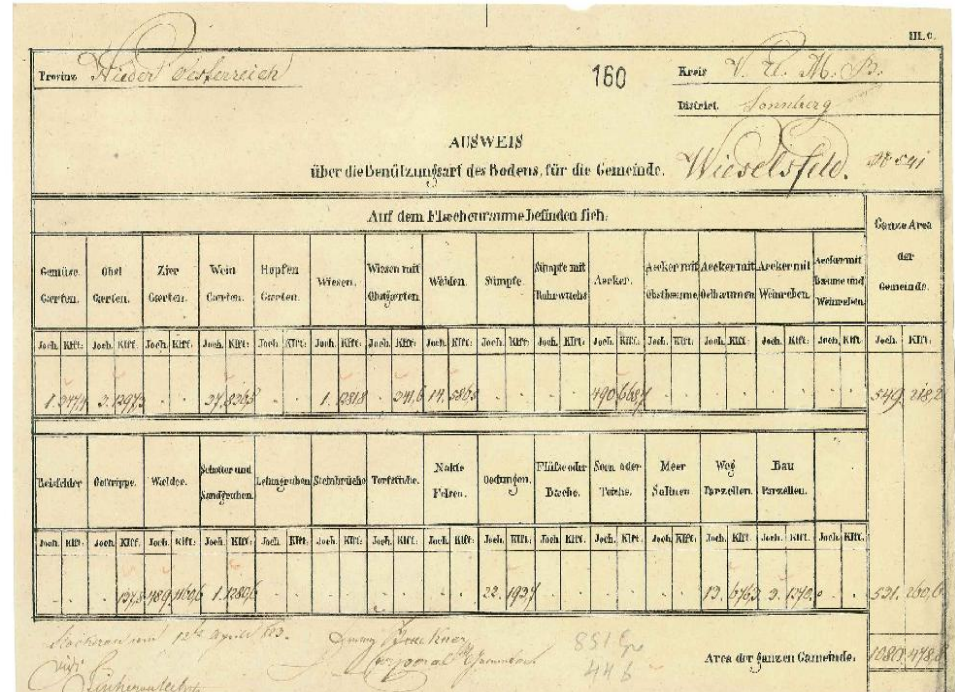 III.c.
Provinz Nieder Oesterreich 160 Kreis V. U. M. B.
District. Sonnberg
AUSWEIS
über die Benützungsart des Bodens, für die Gemeinde. Wieselsfeld. No 541
Auf dem Flæchenraume befinden sich: Ganze Area der Gemeinde.
Gemüse Gærten. Obst Gærten. Zier Gærten. Wein Gærten. Hopfen Gærten. Wiesen. Wiesen mit Obstgærten. Weiden. Sümpfe. Sümpfe mit Rohrwuchs Aecker. Aecker mit Obstbæume. Aecker mit Oelbæumen. Aecker mit Weinreben. Aecker mit Bæume und Weinreben.
Joch. Klft: Joch. Klft: Joch. Klft: Joch. Klft: Joch. Klft: Joch. Klft: Joch. Klft: Joch. Klft: Joch. Klft: Joch. Klft: Joch. Klft: Joch. Klft: Joch. Klft: Joch. Klft: Joch. Klft: Joch. Klft:
1. 3. 1297,3 . . 37. 836,8 . . 1. 1281,8 . 241,6 14. 586,3 . . . . 490. 668,4 . . . . . . . . 549. 218,2
Reisfelder Oelrippe. Wælder. Schotter und Sandgruben. Lehmgruben Steinbrüche Torfstiche. Nakte Felsen. Oedungen. Flüße oder Bæche. Seen oder Teiche. Meer Salinen Weg Parzellen. Bau Parzellen.
Joch. Klft: Joch. Klft: Joch. Klft: Joch. Klft: Joch. Klft: Joch. Klft: Joch. Klft: Joch. Klft: Joch. Klft: Joch. Klft: Joch. Klft: Joch. Klft: Joch. Klft: Joch. Klft: Joch. Klft:
. . . 137,8 489. 1160,6 1. 1280,6 . . . . . . . . 22. 193,7 . . . . . . 13. 676,3 3. 1370,0 . . 531. 260,6
12te April 823.
Corporal
851
446
Area der ganzen Gemeinde. 1080. 478,8